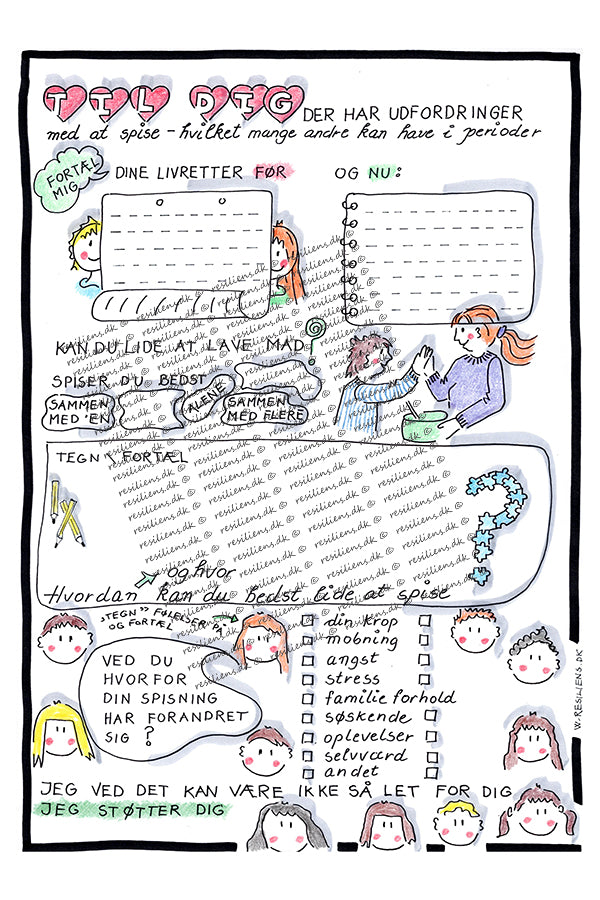 TIL DIG DER HAR UDFORDRINGER
med at spise - hvilket mange andre kan have i perioder
FORTÆL
MIG
DINE LIVRETTER FØR
OG NU:
KAN DU LIDE AT LAVE MAD?
SPISER DU BEDST
SAMMEN
MED ÉN
ALENE
SAMMEN
MED FLERE
TEGN & FORTÆL
resiliens.dk ©
og hvor
Hvordan kan du bedst lide at spise
"TEGN" FØLELSER PÅ
OG FORTÆL
VED DU
HVORFOR
DIN SPISNING
HAR FORANDRET
SIG?
din krop
mobning
angst
stress
familieforhold
søskende
oplevelser
selvværd
andet
W-RESILIENS.DK
JEG VED DET KAN VÆRE IKKE SÅ LET FOR DIG
JEG STØTTER DIG